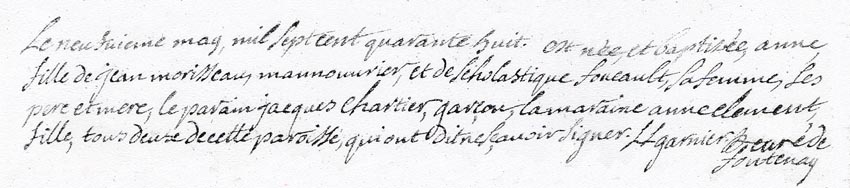 Le neuvsieme may, mil sept cent quarante huit. est née, et baptisée, anne,
fille de jean morisseau, mannouvrier, et de scholastique foucault, sa femme, ses
pere et mere, le parain jacques Chartier, garçon, la maraine anne clement,
fille, tous deux de cette paroisse, qui ont dit ne sçavoir signer. garnier curé de
fontenay